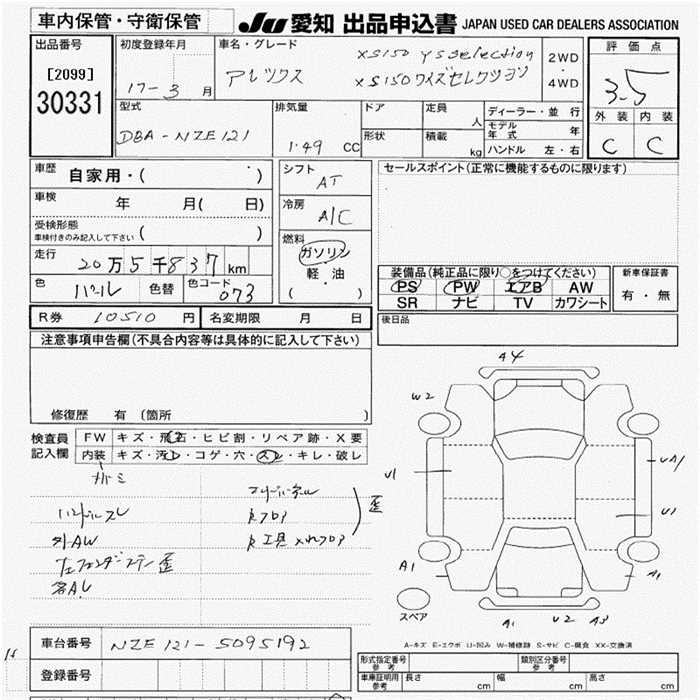 車内保管・守衛保管
JU 愛知 出品申込書 JAPAN USED CAR DEALERS ASSOCIATION
出品番号
[2099]
30331
初度登録年月
17-3 月
車名・グレード
アレックス
XS150 YS selection
XS150ワイズセレクション
2WD
・
4WD
評価点
3.5
外装 内装
C C
型式
DBA-NZE121
排気量
1.49 CC
ドア
形状
定員
人
積載
kg
ディーラー・並行
モデル年式 年
ハンドル 左・右
車歴
自家用・( )
車検
年 月( 日)
受検形態
車検付きのみ記入して下さい ( )
走行
20万5千837km
色
パール
色替
色コード
073
シフト
AT
冷房
A/C
燃料
ガソリン
軽・油
( )
セールスポイント(正常に機能するものに限ります)
装備品(純正品に限り○をつけてください)
PS PW エアB AW
SR ナビ TV カワシート
新車保証書
有・無
R券 10510 円
名変期限 月 日
後日品
注意事項申告欄(不具合内容等は具体的に記入して下さい)
修復歴 有 (箇所 )
検査員
記入欄
FW キズ・飛石・ヒビ割・リペア跡・X要
内装 キズ・汚レ・コゲ・穴・スレ・キレ・破レ
ハンドルスレ
外AW
歪
A4
W2
U1
UA1
U1
A1
A1
スペア
A1 U2 A3
A-キズ E-エクボ U-凹み W-補修跡 S-サビ C-腐食 XX-交換済
車台番号 NZE121-5095192
登録番号
形式指定番号
参考
類別区分番号
参考
車庫証明用
参考
長さ cm 幅 cm 高さ cm